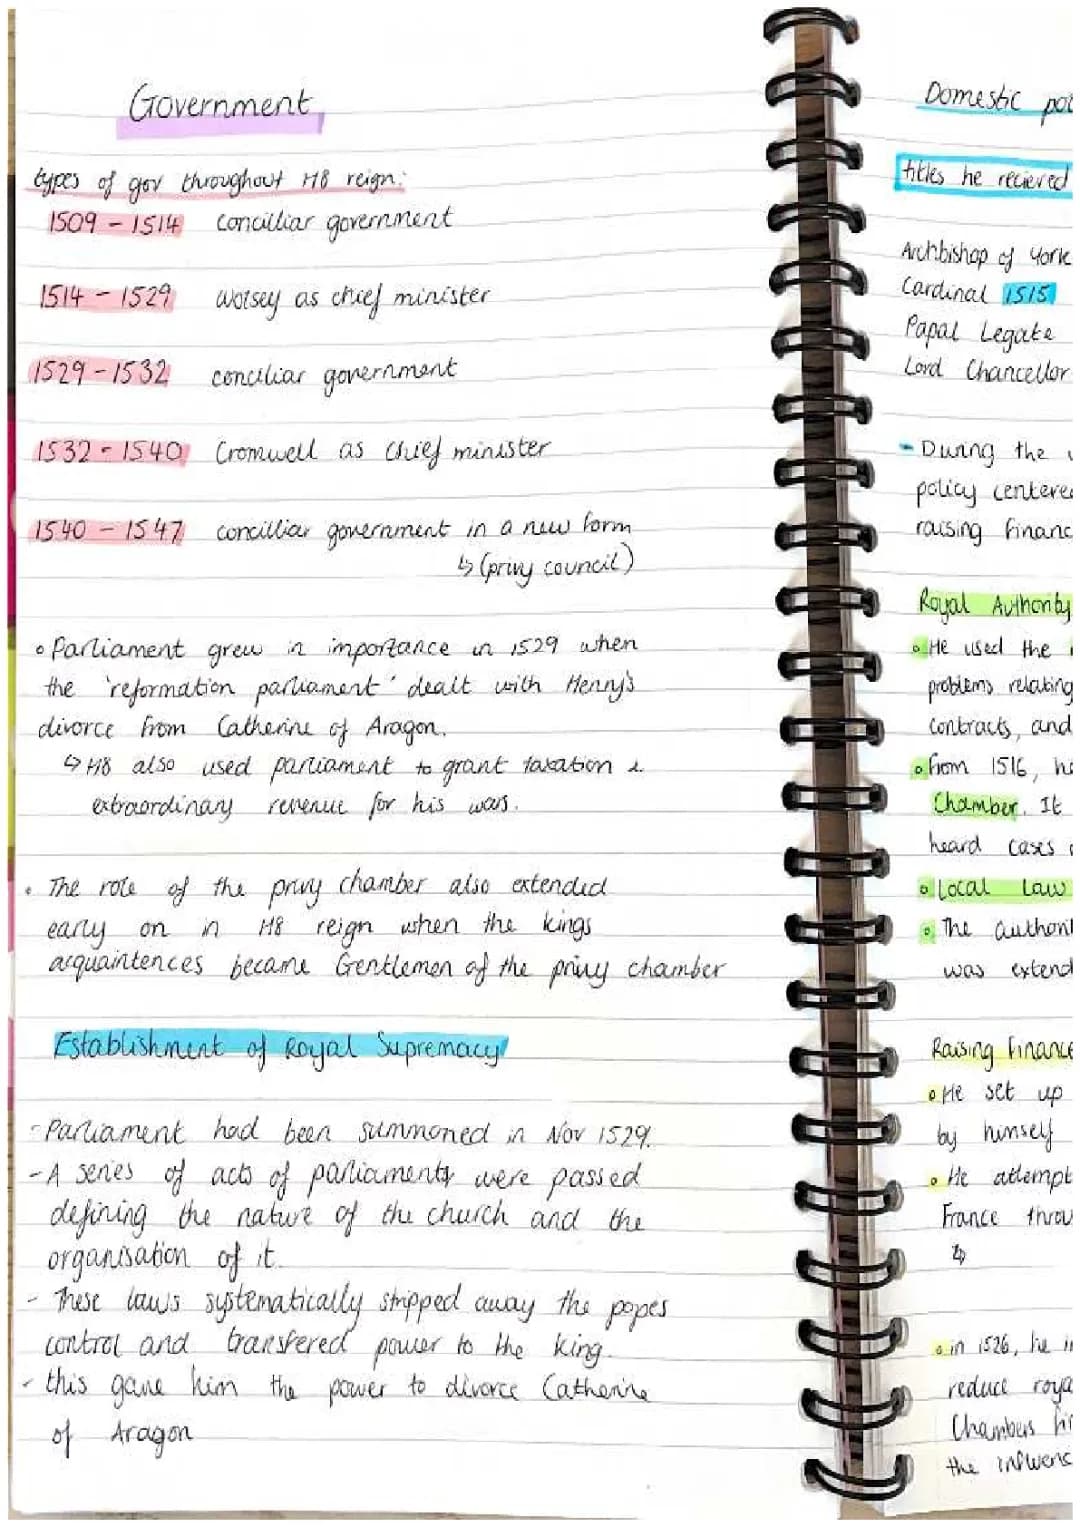 Government
types of gov throughout H8 reign:
1509 - 1514 concilliar government
1514 - 1529 Wolsey as chief minister
1529 - 1532 conciliar government
1532 - 1540 Cromwell as chief minister
1540 - 1547 concilliar government in a new form
↳ (privy council)
• Parliament grew in importance in 1529 when
the 'reformation parliament' dealt with Henry's
divorce from Catherine of Aragon.
↳ H8 also used parliament to grant taxation &
extraordinary revenue for his wars.
• The role of the privy chamber also extended
early on in H8 reign when the kings
acquaintences became Gentlemen of the privy chamber
Establishment of Royal Supremacy
- Parliament had been summoned in Nov 1529.
- A series of acts of parliaments were passed
defining the nature of the church and the
organisation of it.
- These laws systematically stripped away the popes
control and transfered power to the king.
- this gave him the power to divorce Catherine
of Aragon
Domestic
titles he recieved
Archbishop of York
Cardinal 1515
Papal Legate
Lord Chancellor
- During the
policy
raising
Royal Authority
• He used the
problems relating
contracts, and
• from 1516,
Chamber. It
heard cases
• Local Law
• The
was
Raising Finance
• He set up
by himself
• He
France
↳
• in 1526, he
reduce
Chambers
the